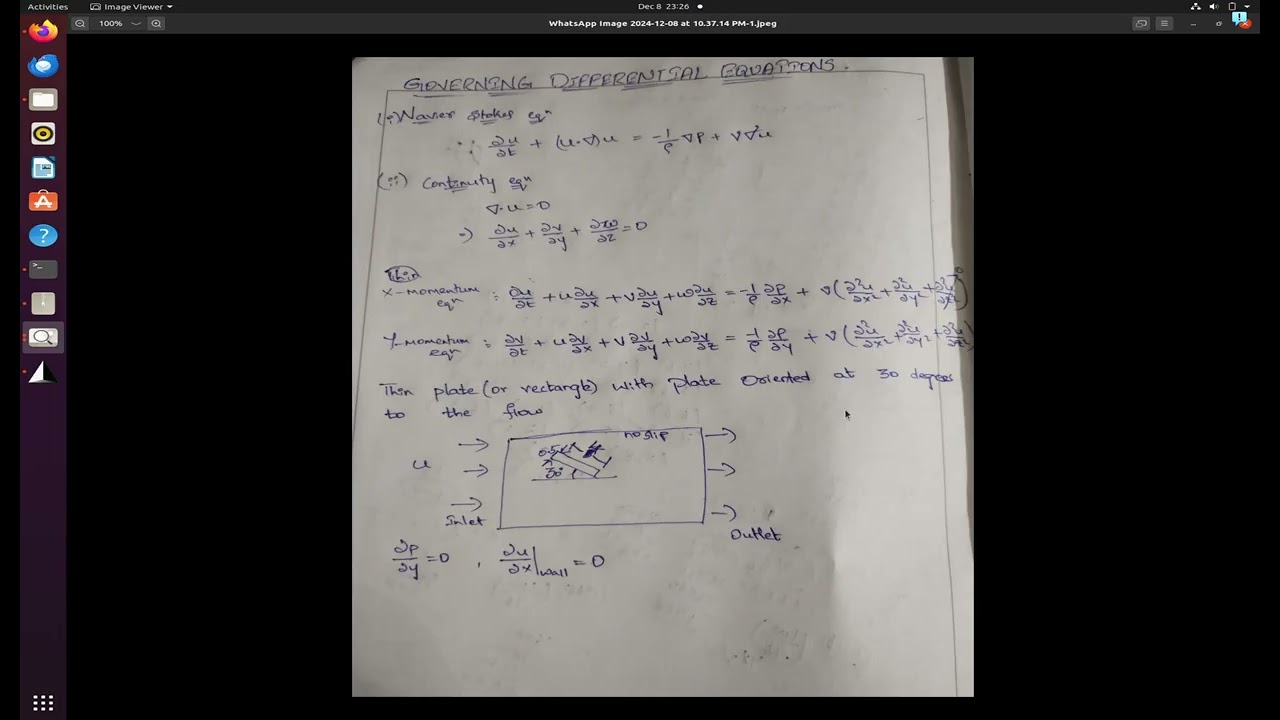 Activities Image Viewer Dec 8 23:26
100% WhatsApp Image 2024-12-08 at 10.37.14 PM-1.jpeg
GOVERNING DIFFERENTIAL EQUATIONS.
(i) Navier stokes eqⁿ
∴ ∂u/∂t + (u·∇)u = -1/ρ ∇P + ν∇²u
(ii) Continuity eqⁿ
∇·u = 0
⇒ ∂u/∂x + ∂v/∂y + ∂w/∂z = 0
Thin
X-momentum eqⁿ : ∂u/∂t + u∂u/∂x + v∂u/∂y + w∂u/∂z = -1/ρ ∂P/∂x + ν(∂²u/∂x² + ∂²u/∂y² + ∂²u/∂z²)
Y-momentum eqⁿ : ∂v/∂t + u∂v/∂x + v∂v/∂y + w∂v/∂z = -1/ρ ∂P/∂y + ν(∂²u/∂x² + ∂²u/∂y² + ∂²u/∂z²)
Thin plate (or rectangle) with plate oriented at 30 degrees
to the flow
no slip
30°
u
Inlet
Outlet
∂P/∂y = 0 , ∂u/∂x|wall = 0